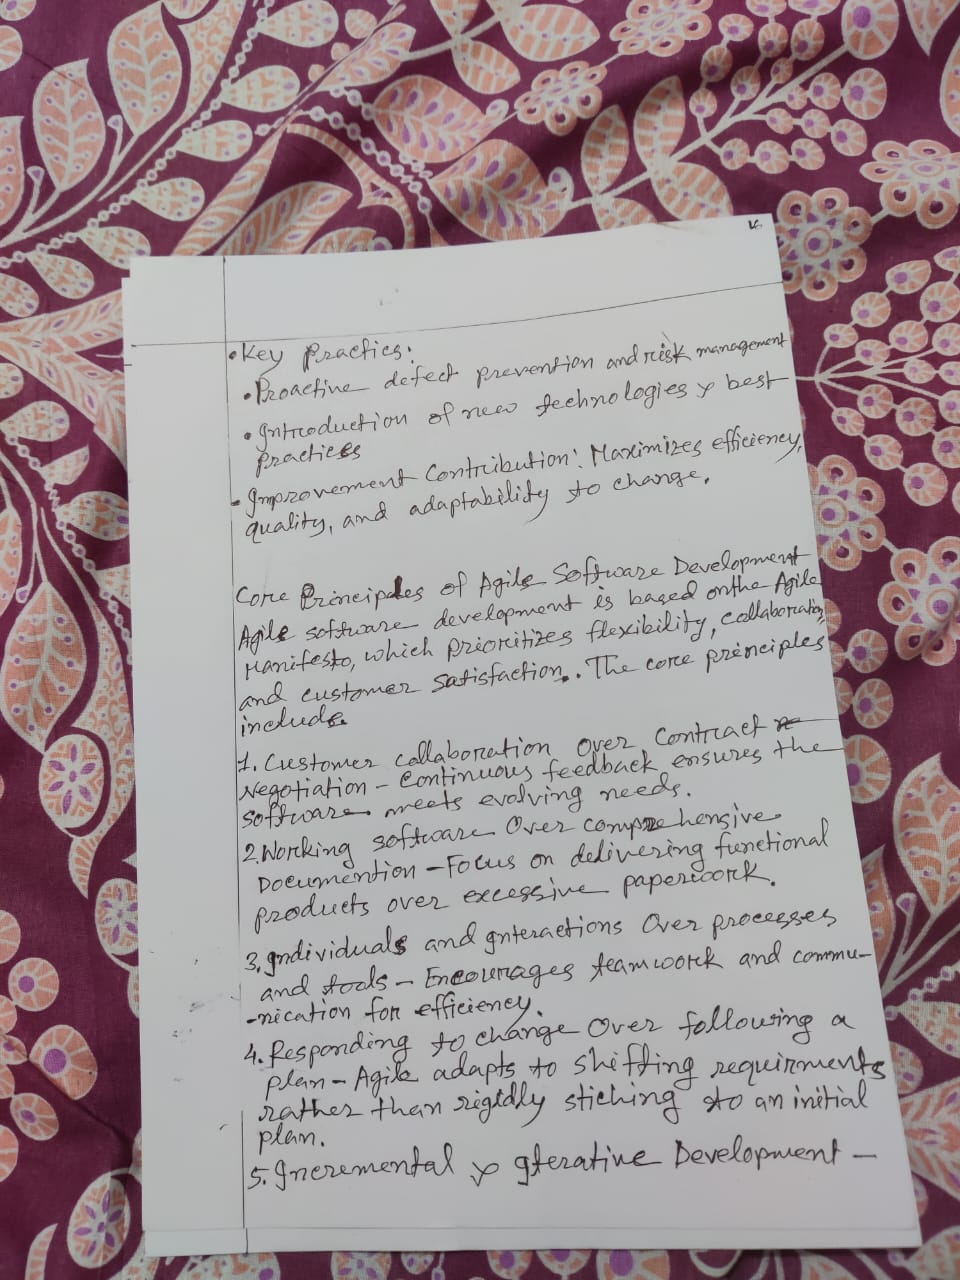 • Key Practics.
• Proactive defect prevention and risk management
• Introduction of new technologies & best
practices
• Improvement Contribution: Maximizes efficiency,
quality, and adaptability to change.
Core Principles of Agile Software Development
Agile software development is based on the Agile
Manifesto, which prioritizes flexibility, collaboration,
and customer satisfaction. The core principles
include
1. Customer collaboration over contract
Negotiation – Continuous feedback ensures the
software meets evolving needs.
2. Working software over comprehensive
Documention – Focus on delivering functional
products over excessive paperwork.
3. Individuals and Interactions over processes
and tools – Encourages teamwork and commu-
-nication for efficiency.
4. Responding to change over following a
plan – Agile adapts to shifting requirments
rather than rigidly stiching to an initial
plan.
5. Incremental & Iterative Development –